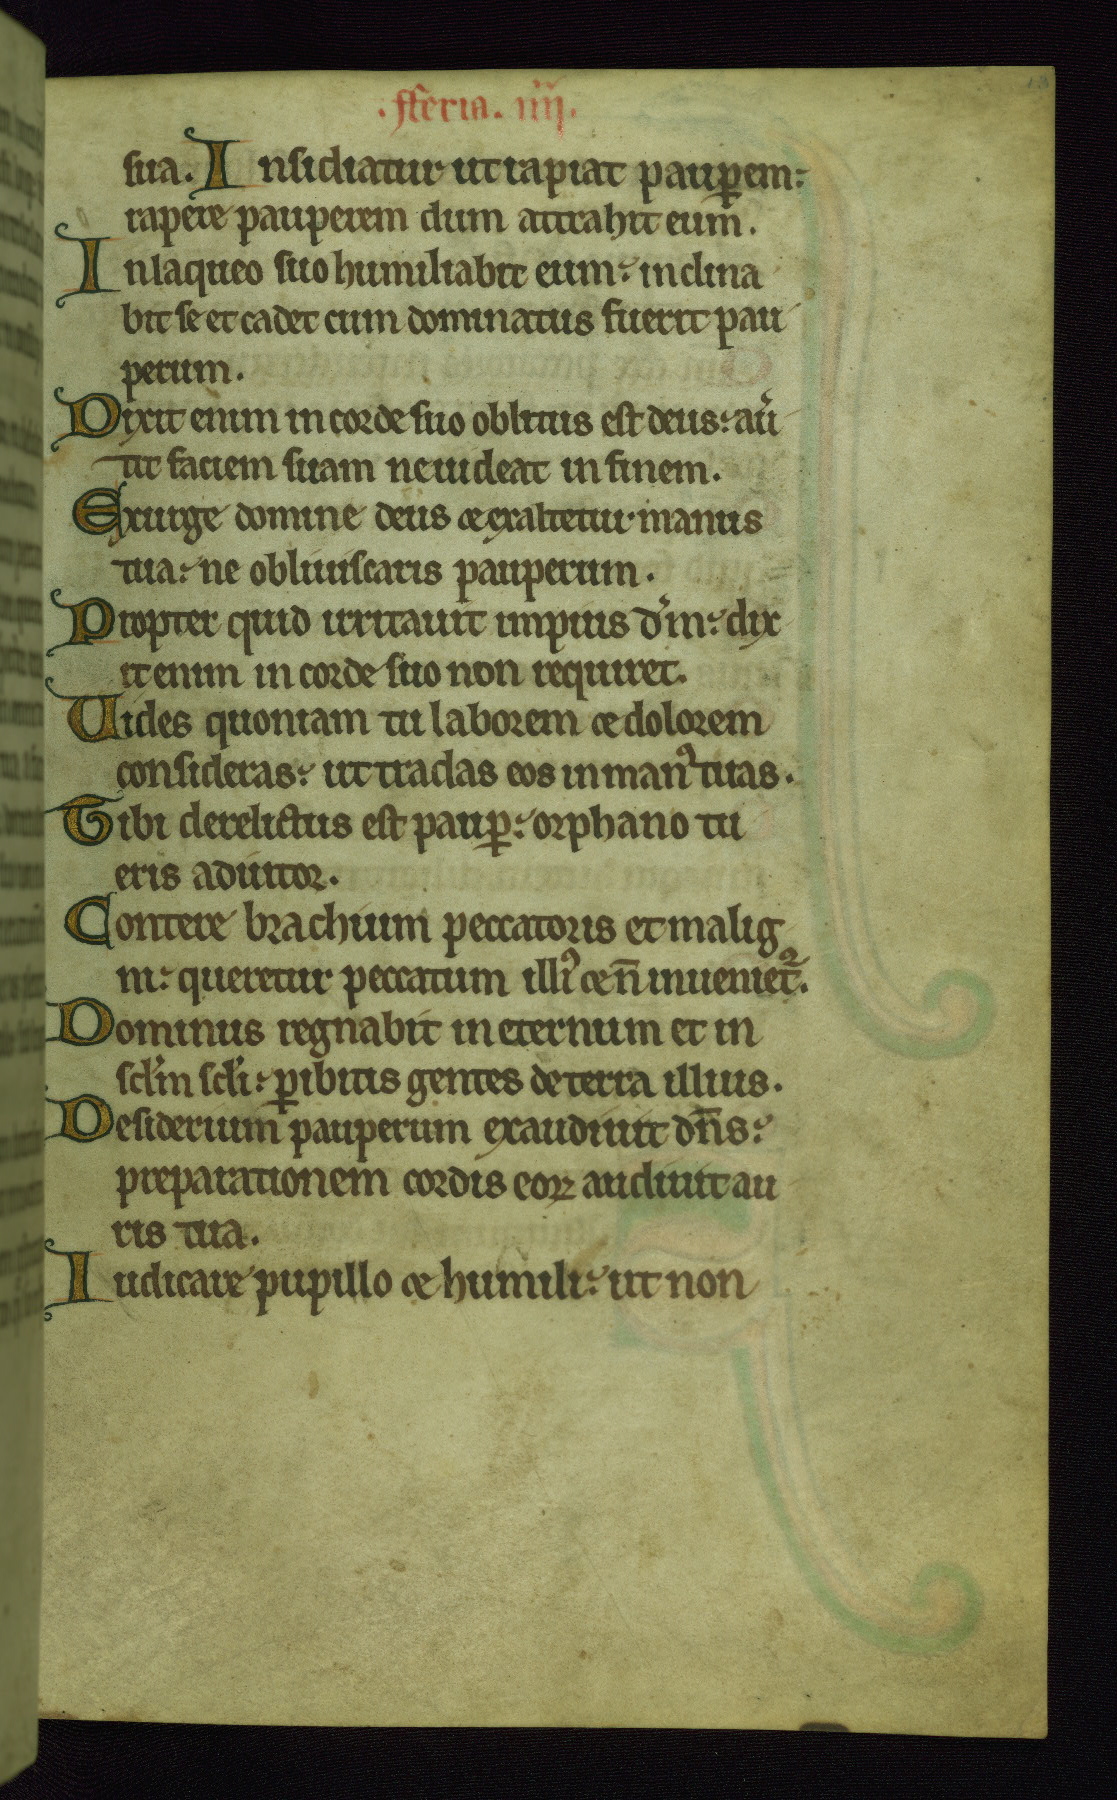 .fferia. iiij.
sua. Insidiatur ut rapiat paup̱em:
rapere pauperem dum attrahit eum.
In laqueo suo humiliabit eum: inclina
bit se et cadet cum dominatus fuerit pau
perum.
Dixit enim in corde suo oblitus est deus: au͛
tit faciem suam ne uideat in finem.
Exurge domine deus ⁊ exaltetur manus
tua: ne obliuiscaris pauperum.
Propter quid irritauit impius d̓m: dix
it enim in corde suo non requiret.
Uides quoniam tu laborem ⁊ dolorem
consideras: ut tradas eos in manꝰ tuas.
Tibi derelictus est paup̱: orphano tu
eris adiutor.
Contere brachium peccatoris et malig
ni: queretur peccatum illiꝰ ⁊ n̄ inuenietᷣ.
Dominus regnabit in eternum et in
scl̓m scl̓i: p̱ibitis gentes de terra illius.
Desiderium pauperum exaudiuit dn̄s:
preparationem cordis eoꝝ audiuit au
ris tua.
Iudicare pupillo ⁊ humili: ut non